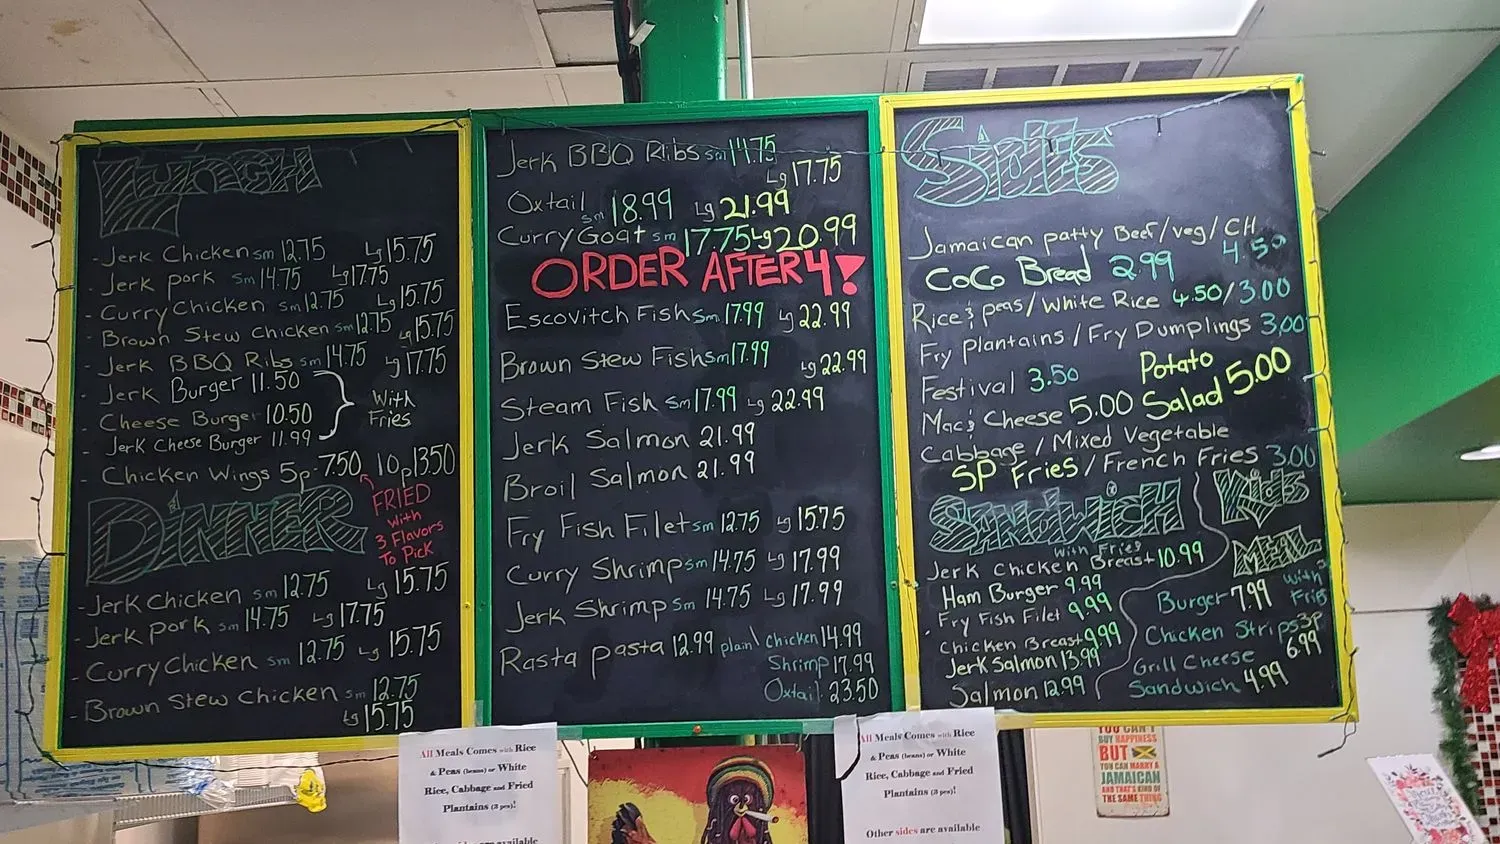 Lunch
- Jerk Chicken sm 12.75 Lg 15.75
- Jerk pork sm 14.75 Lg 17.75
- Curry Chicken sm 12.75 Lg 15.75
- Brown Stew Chicken sm 12.75 Lg 15.75
- Jerk BBQ Ribs sm 14.75 Lg 17.75
- Jerk Burger 11.50
- Cheese Burger 10.50
- Jerk Cheese Burger 11.99
With
Fries
- Chicken Wings 5p - 7.50 10p 13.50
FRIED
with
3 Flavors
To Pick
DiNNER
- Jerk Chicken sm 12.75 Lg 15.75
- Jerk pork sm 14.75 Lg 17.75
- Curry Chicken sm 12.75 Lg 15.75
- Brown Stew Chicken sm 12.75
Lg 15.75
Jerk BBQ Ribs sm 14.75
Lg 17.75
Oxtail sm 18.99 Lg 21.99
Curry Goat sm 17.75 Lg 20.99
ORDER AFTER 4!
Escovitch Fish sm 17.99 Lg 22.99
Brown Stew Fish sm 17.99 Lg 22.99
Steam Fish sm 17.99 Lg 22.99
Jerk Salmon 21.99
Broil Salmon 21.99
Fry Fish Filet sm 12.75 Lg 15.75
Curry Shrimp sm 14.75 Lg 17.99
Jerk Shrimp sm 14.75 Lg 17.99
Rasta pasta 12.99 plain \ Chicken 14.99
Shrimp 17.99
Oxtail 23.50
SidEs
Jamaican patty Beef/veg/CH
4.50
CoCo Bread 2.99
Rice & peas/White Rice 4.50/3.00
Fry Plantains / Fry Dumplings 3.00
Festival 3.50
Mac & Cheese 5.00
Potato
Salad 5.00
Cabbage / Mixed Vegetable
SP Fries / French Fries 3.00
SANdWiCH
With Fries
Jerk Chicken Breast 10.99
Ham Burger 9.99
Fry Fish Filet 9.99
Chicken Breast 9.99
Jerk Salmon 13.99
Salmon 12.99
Kids
MEAL
With
Fries
Burger 7.99
Chicken Strips 3p
6.99
Grill Cheese
Sandwich 4.99
All Meals Comes with Rice
& Peas (beans) or White
Rice, Cabbage and Fried
Plantains (3 pcs)!
sides are available
All Meals Comes with Rice
& Peas (beans) or White
Rice, Cabbage and Fried
Plantains (3 pcs)!
Other sides are available
YOU CAN'T
BUY HAPPINESS
BUT
YOU CAN MARRY A
JAMAICAN
AND THAT'S KIND OF
THE SAME THING